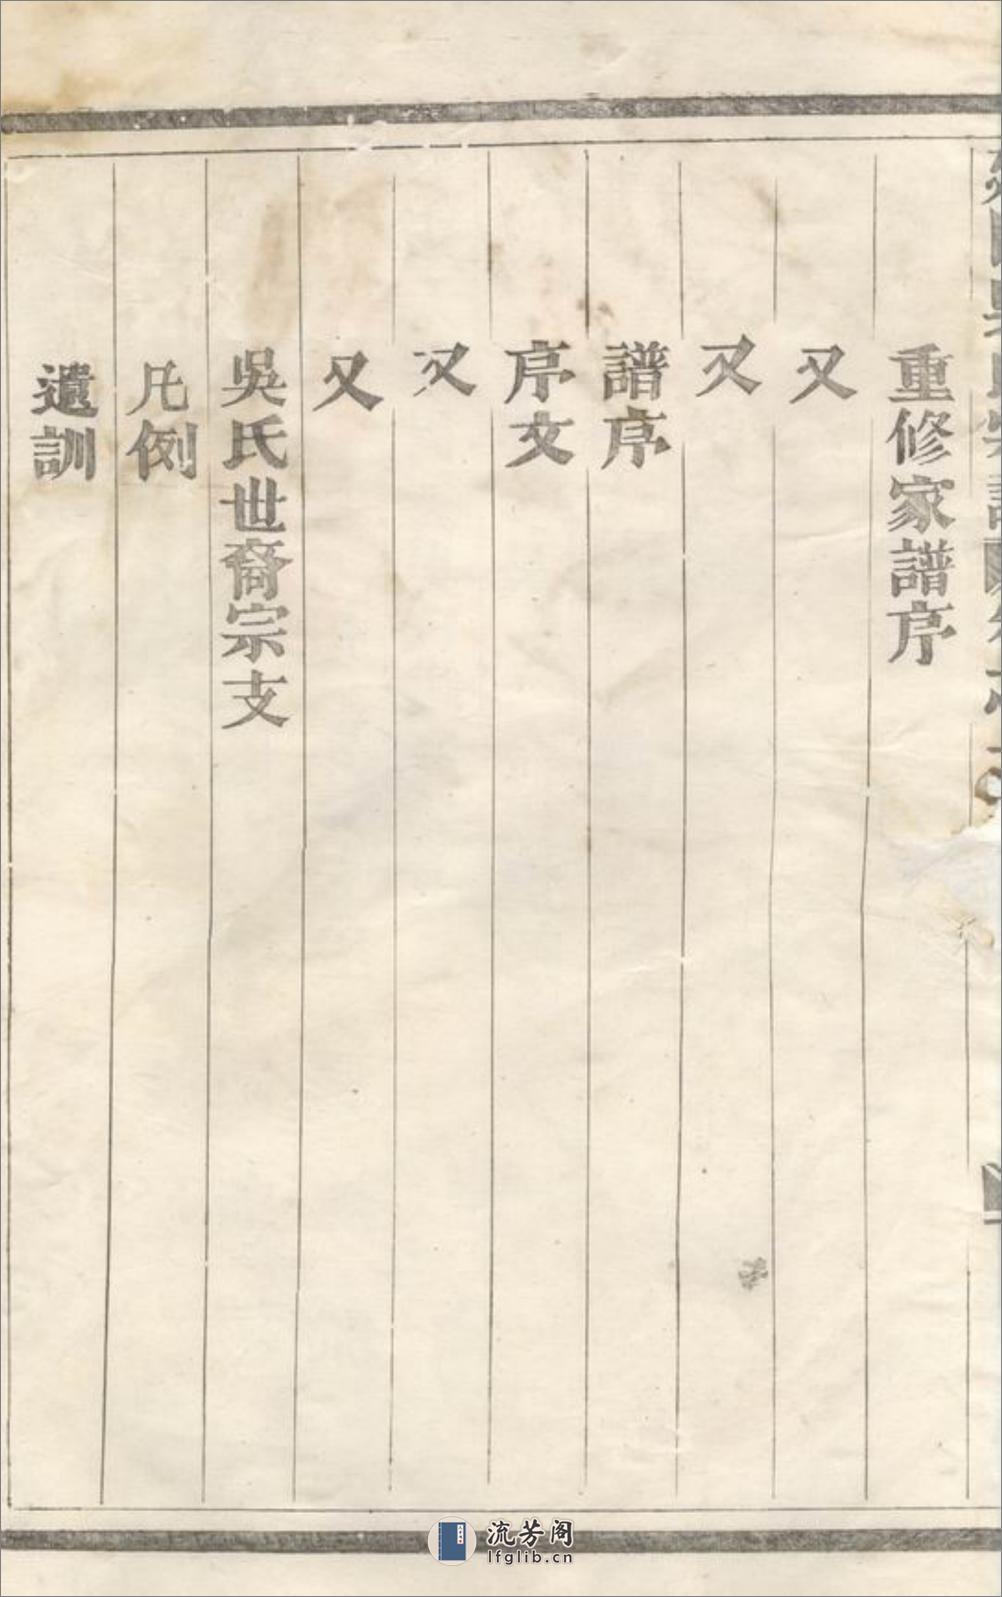 重修家譜序
又
又
譜序
序文
又
又
吳氏世裔宗支
凡例
遺訓
流芳阁
lfglib.cn